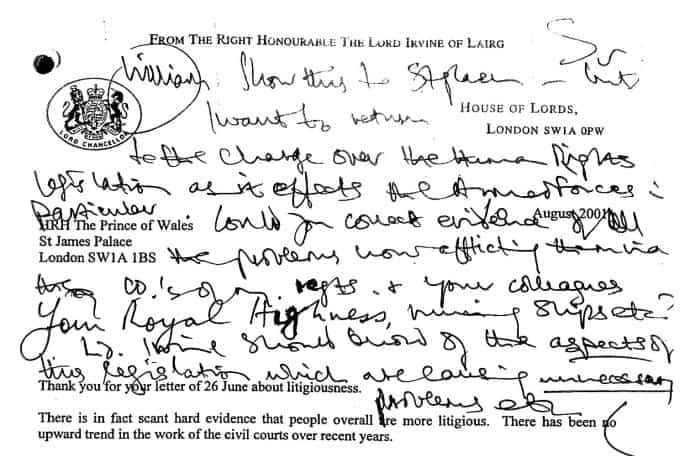 FROM THE RIGHT HONOURABLE THE LORD IRVINE OF LAIRG
Sir
William: Show this to Stephen – but
I want to return
HOUSE OF LORDS,
LONDON SW1A 0PW
LORD CHANCELLOR
to the charge over the Human Rights
legislation as it effects the Armed forces in
particular Could you collect evidence of all
HRH The Prince of Wales
August 2001
St James Palace
London SW1A 1BS
the problems now afflicting them via
the CO.'s of my regts. & your colleagues
Your Royal Highness, running ships etc?
Ld. Irvine should know of the aspects of
this legislation which are causing unnecessary
Thank you for your letter of 26 June about litigiousness.
problems etc.
There is in fact scant hard evidence that people overall are more litigious. There has been no
upward trend in the work of the civil courts over recent years.